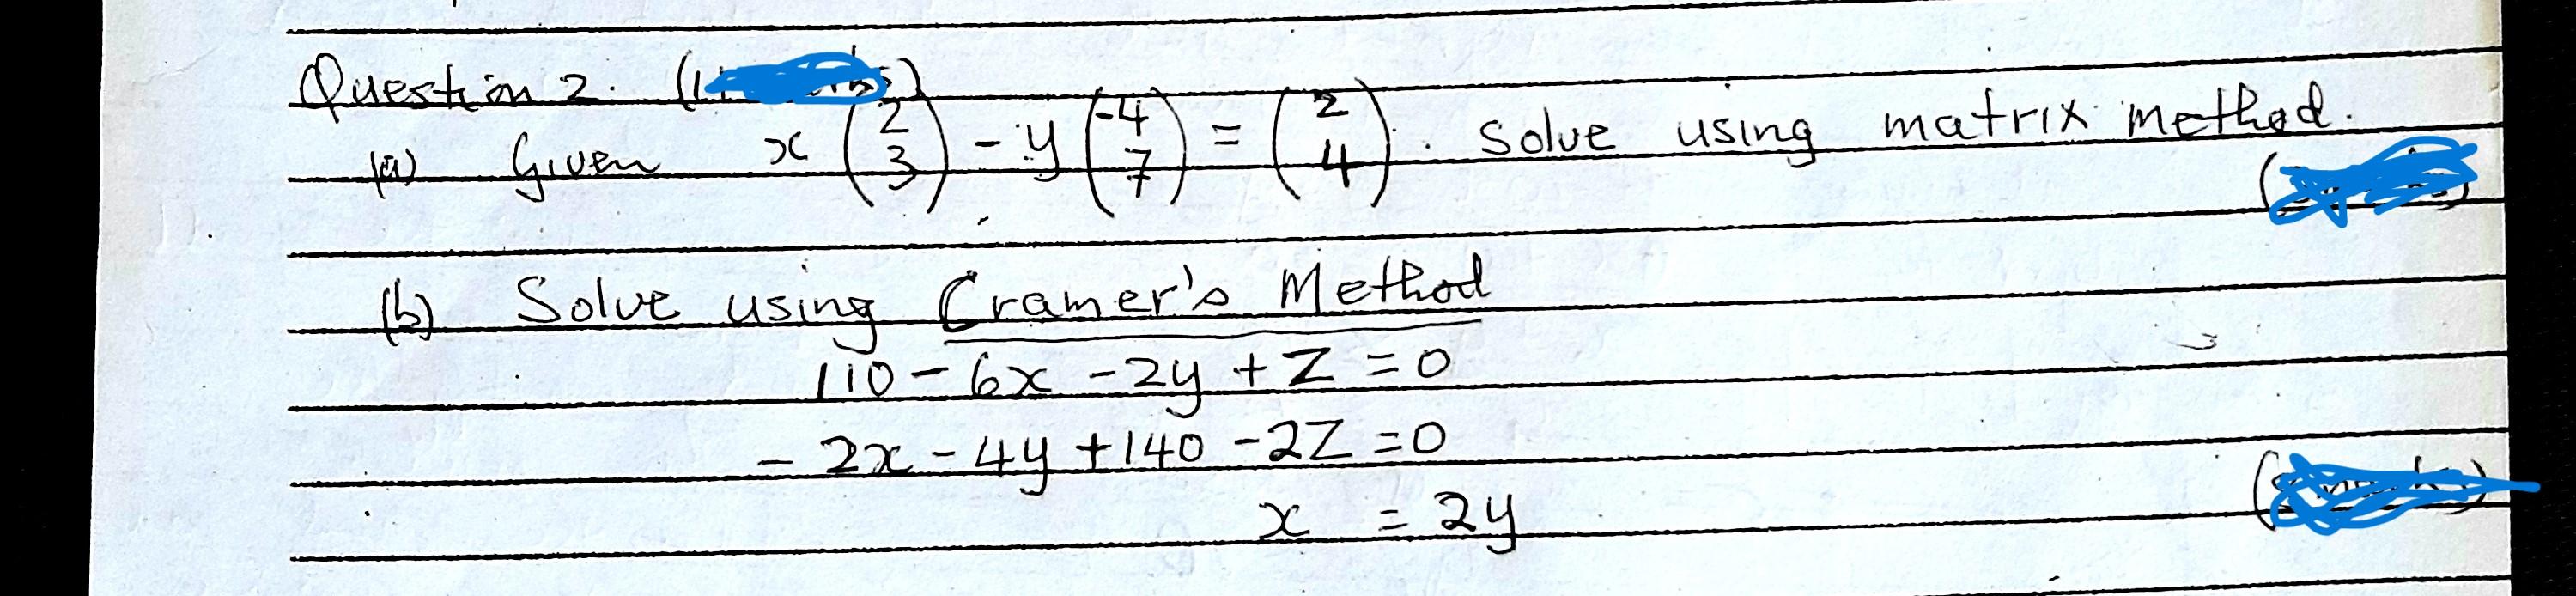 Question 2.
(a) Given x (2 3) - y (-4 7) = (2 4). Solve using matrix method.
(b) Solve using Cramer's Method
110 - 6x - 2y + Z = 0
- 2x - 4y + 140 - 2Z = 0
x = 2y